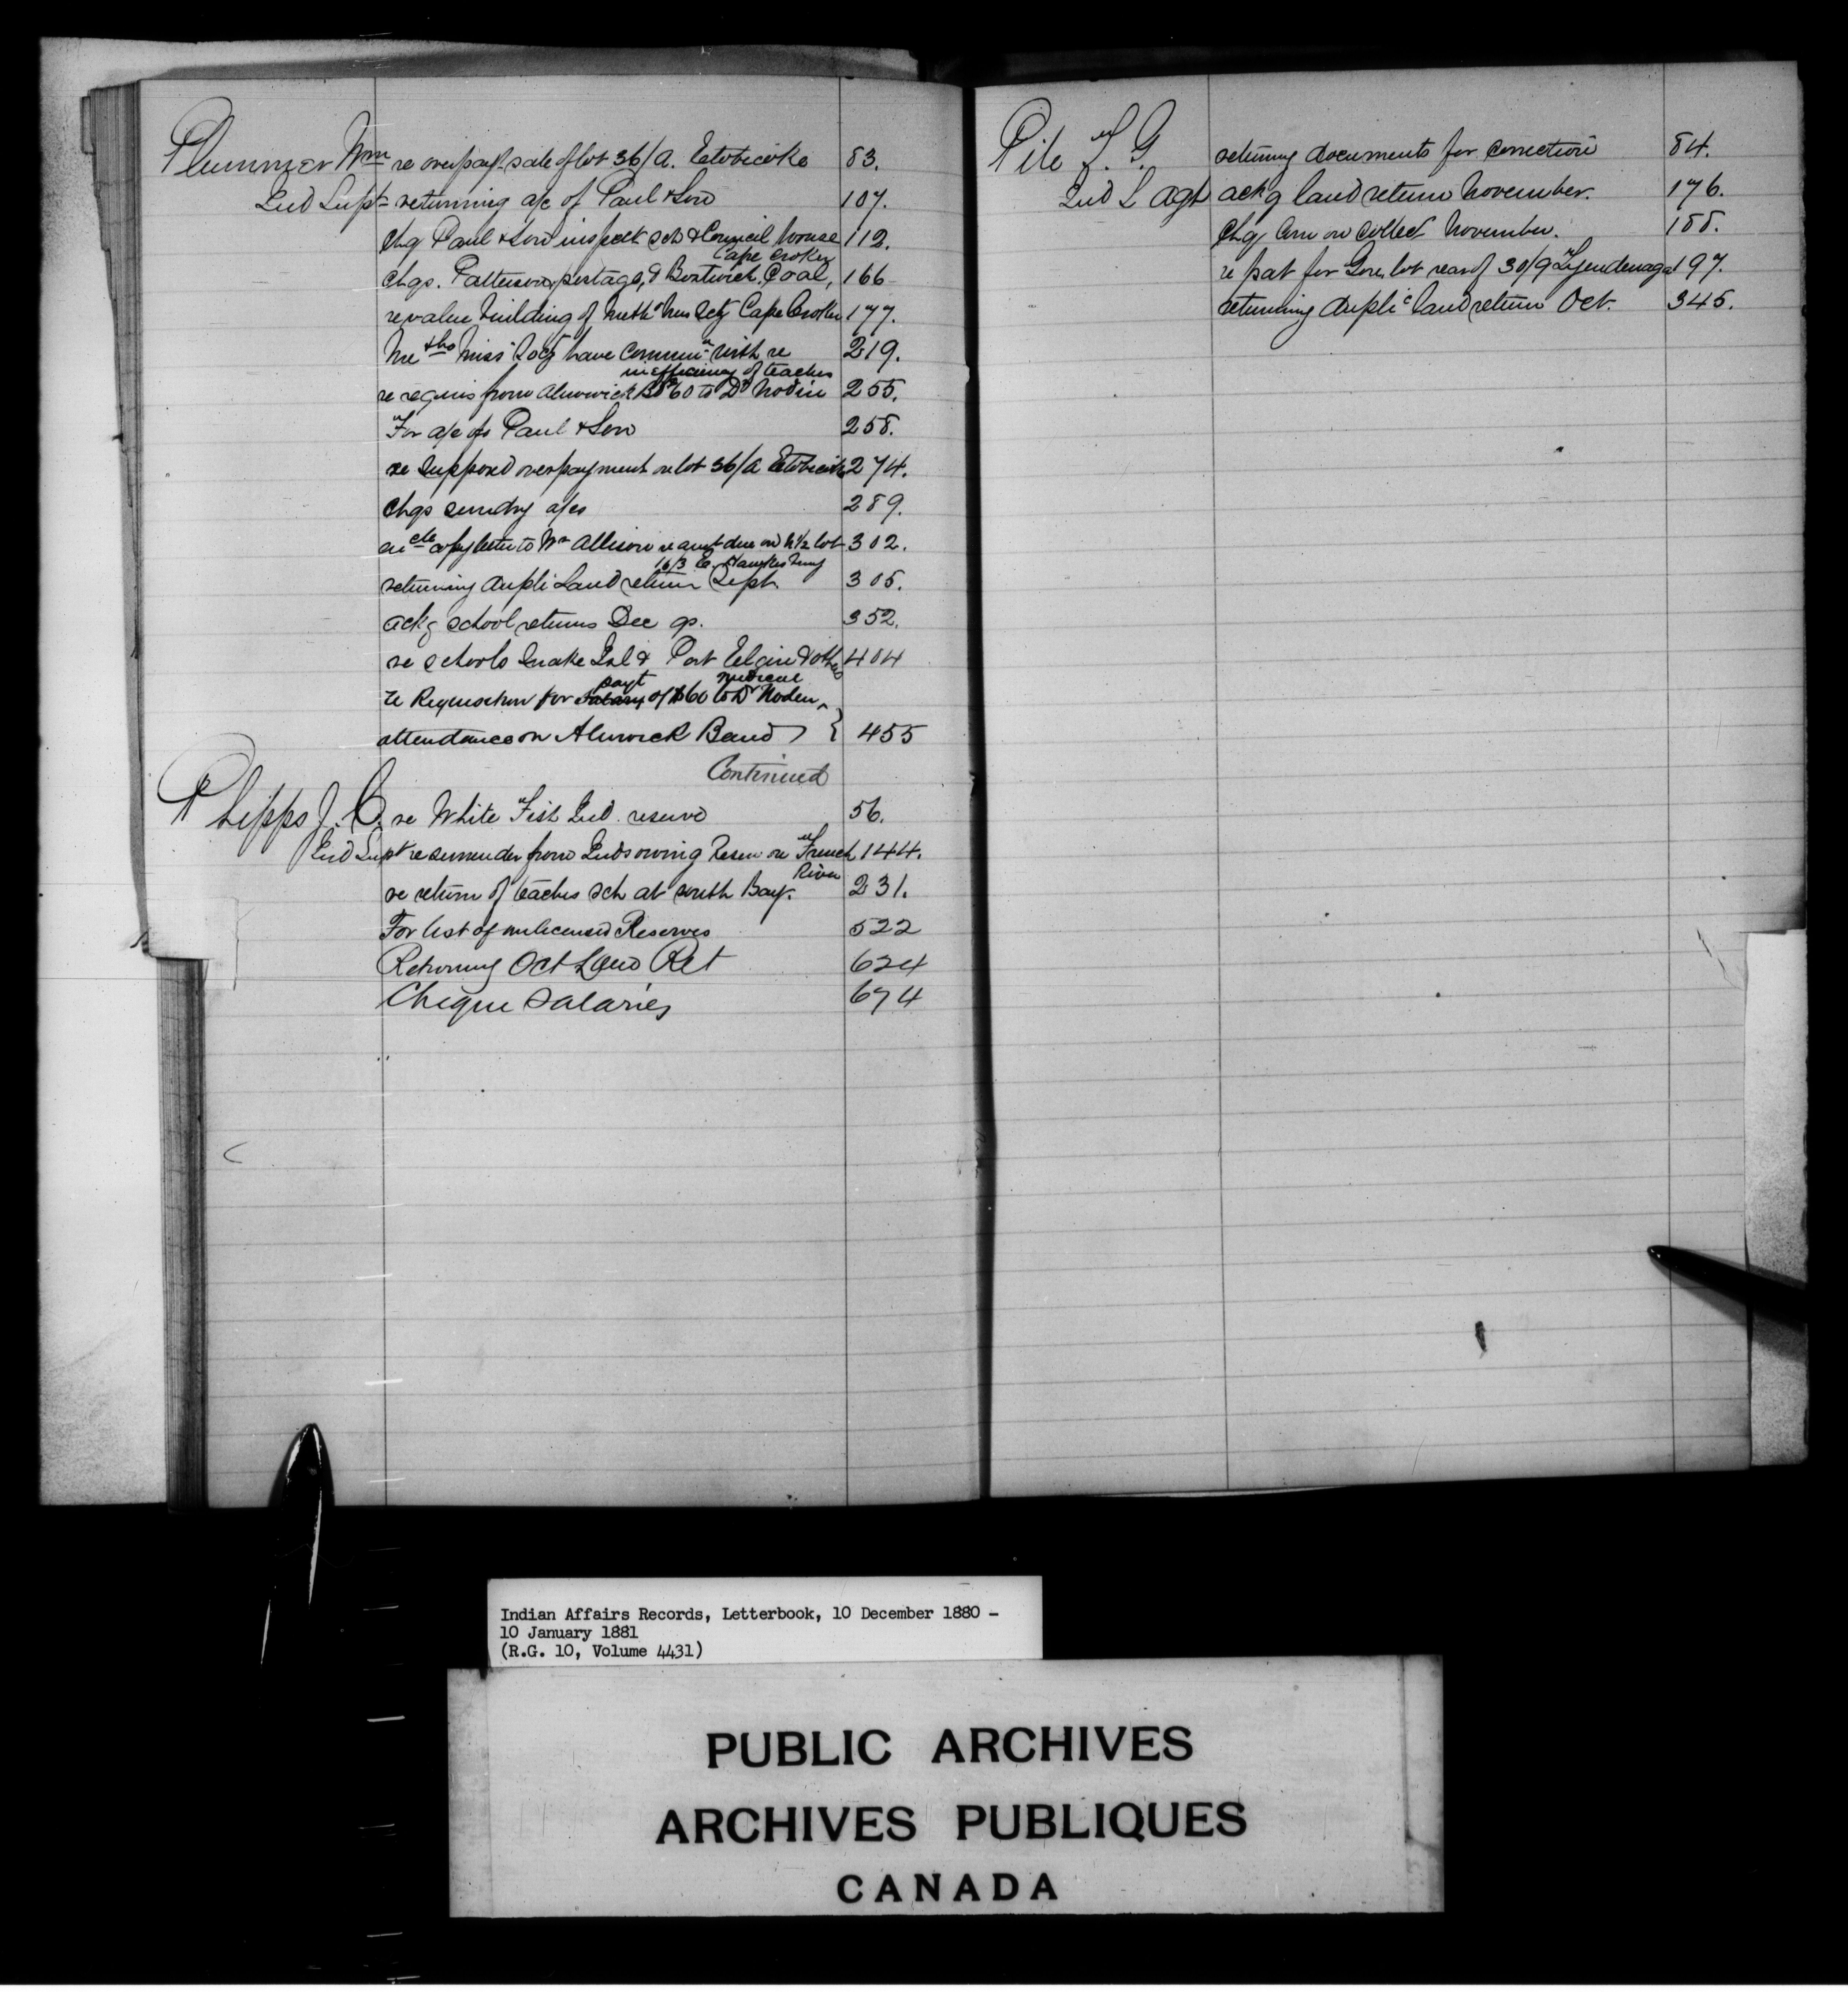 Plummer Wm re overpayt sale of lot 36/A. Etobicoke 83.
Ind Supt returning a/c of Paul & Son 107.
Chq Paul & Son inspect sch & Council house 112.
Cape Croker
Chqs. Patterson, postage, & Bostwick, Coal, 166
re value building of Meth Miss Scty Cape Croker 177.
Metho Miss Socy have commun with re 219.
inefficiency of teacher
re requis from Alnwick Bd $60 to Dr Nodin 255.
For a/c of Paul & Son 258.
re supposed overpayment on lot 36/A Etobicoke 274.
Chqs sundry a/cs 289.
copy letter to Wm Allison re amt due on N 1/2 lot 302.
16/3 E.
returning dupli Land return Sept 305.
ackg school returns Dec qr. 352.
re schools Snake Isl & Port Elgin & others 404
payt medical
re Requisition for salary of $60 to Dr Noden
attendance on Alnwick Band } 455
Continued
Phipps J. C. re White Fish Ind. reserve 56.
Ind Supt re surrender from Inds owning Reserve on French 144.
River
re return of teachers sch at south Bay. 231.
For list of unlicensed Reserves 522
Returning Oct Land Ret 624
Cheque Salaries 674
Pile F. G. returning documents for correction 84.
Ind L Agt ackg land return November. 176.
Chq Com on collect November. 188.
re pat for Gore lot rear of 30/9 Tyendenaga 197.
returning duplic land return Oct. 345.
Indian Affairs Records, Letterbook, 10 December 1880 -
10 January 1881
(R.G. 10, Volume 4431)
PUBLIC ARCHIVES
ARCHIVES PUBLIQUES
CANADA